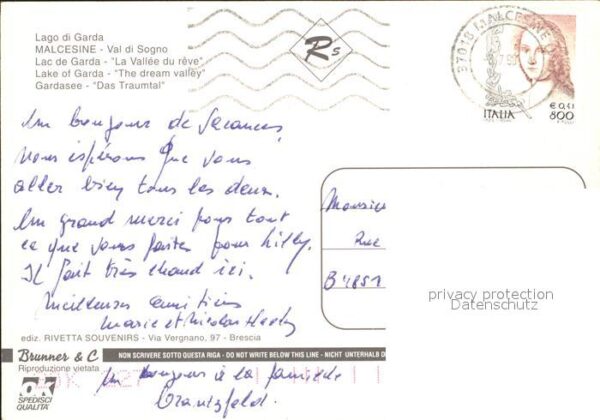 Lago di Garda
MALCESINE - Val di Sogno
Lac de Garda - "La Vallée du rêve"
Lake of Garda - "The dream valley"
Gardasee - "Das Traumtal"
Rs
37018 MALCESINE
ITALIA
€ 0,41
800
Un bonjour de vacances,
nous espérons que vous
aller bien tous les deux.
Un grand merci pour tout
ce que vous faites pour
Il fait très chaud ici.
Meilleures amitiés
Marie et Nicolas
Monsieur
Rue
B 4851
privacy protection
Datenschutz
ediz. RIVETTA SOUVENIRS - Via Vergnano, 97 - Brescia
Brunner & C
Riproduzione vietata
NON SCRIVERE SOTTO QUESTA RIGA - DO NOT WRITE BELOW THIS LINE - NICHT UNTERHALB D
OK
SPEDISCI
QUALITA'
Un bonjour à la famille